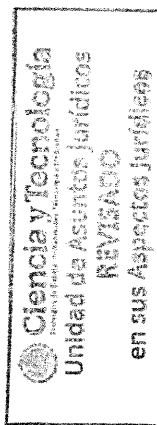 Ciencia y Tecnología
Unidad de Asuntos Jurídicos
REVISADO
en sus Aspectos jurídicos